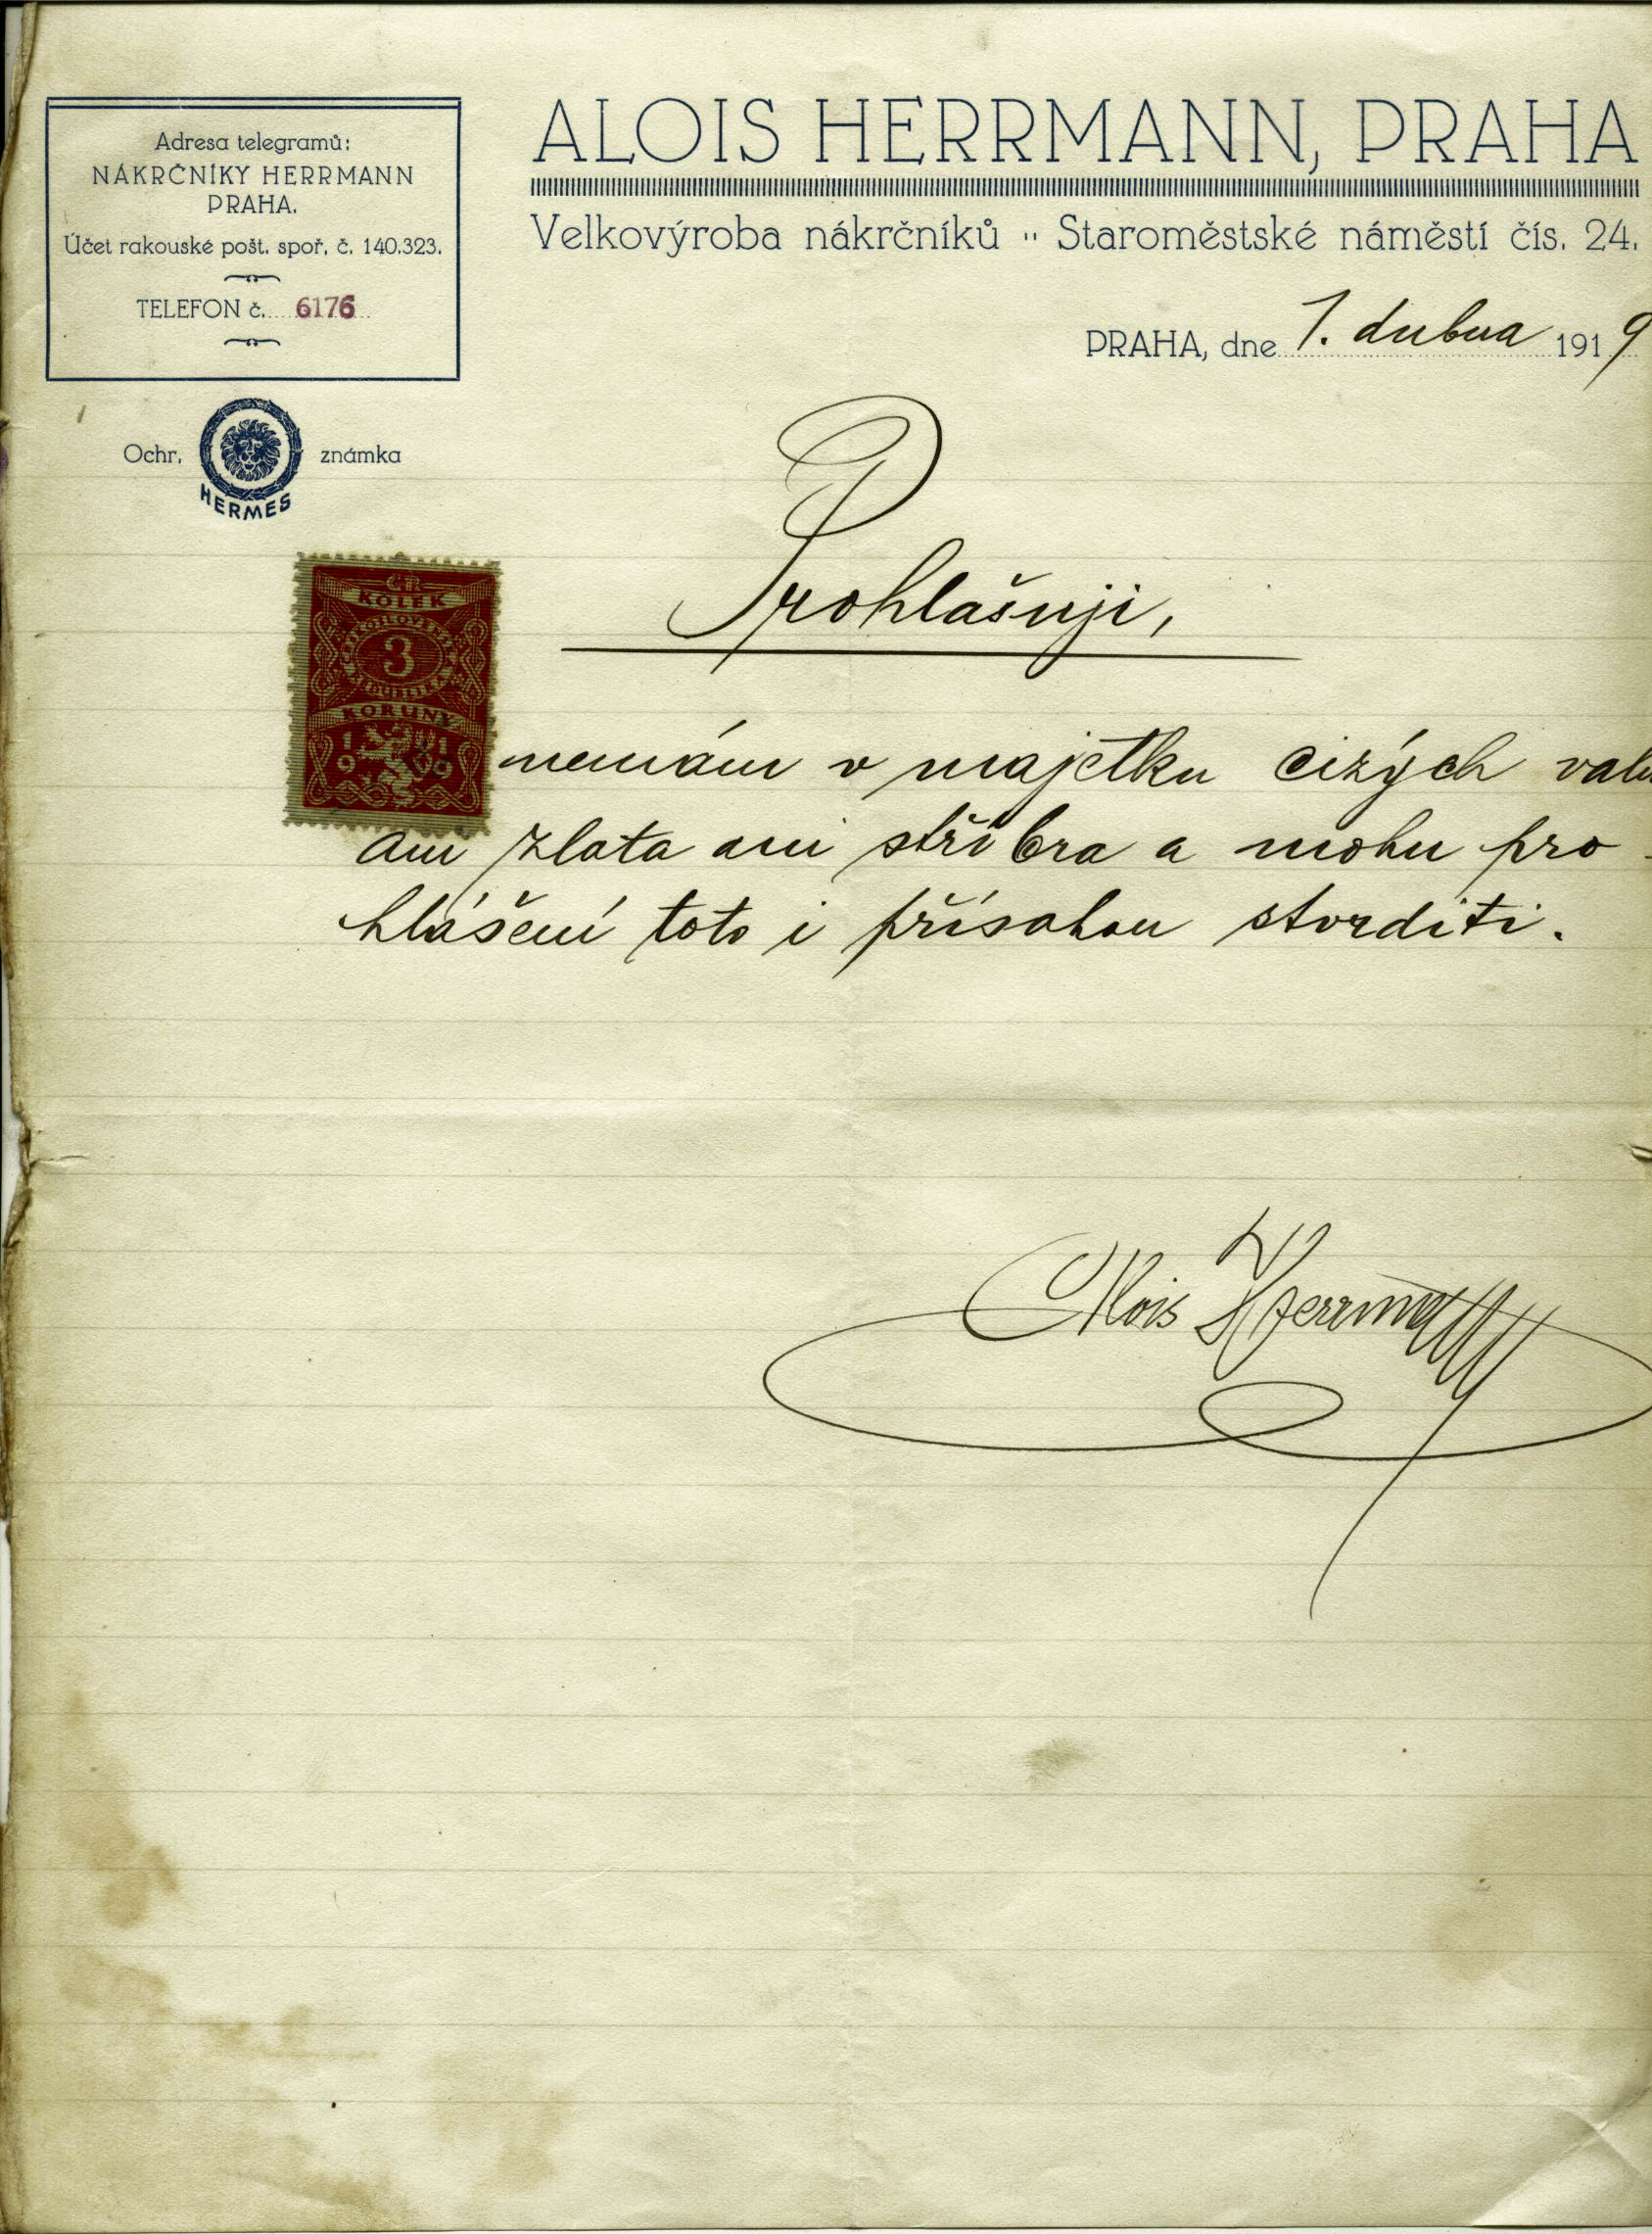 Adresa telegramů:
NÁKRČNÍKY HERRMANN
PRAHA.
Účet rakouské pošt. spoř. č. 140.323.
TELEFON č. 6176
Ochr. známka
HERMES
ALOIS HERRMANN, PRAHA
Velkovýroba nákrčníků „ Staroměstské náměstí čís. 24.
PRAHA, dne 1. dubna 1919
ČR
KOLEK
3
KORUNY
1919
Prohlašuji,
nemám v majetku cizých
ani zlata ani stříbra a mohu pro-
hlášení toto i přísahou stvrditi.
Alois Herrmann